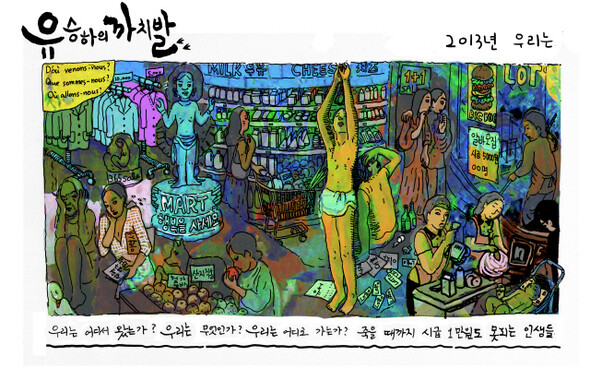 유승하의 까치발
2013년 우리는
D'où venons-nous?
Que sommes-nous?
Où allons-nous?
10,000
MILK 우유
CHEESE 치즈
1+1
LOT
BIG
알바모집
시급 5000원
00명
MART
행복을 사세요
산지직송
우리는 어디서 왔는가? 우리는 무엇인가? 우리는 어디로 가는가? 죽을 때까지 시급 1만원도 못되는 인생들